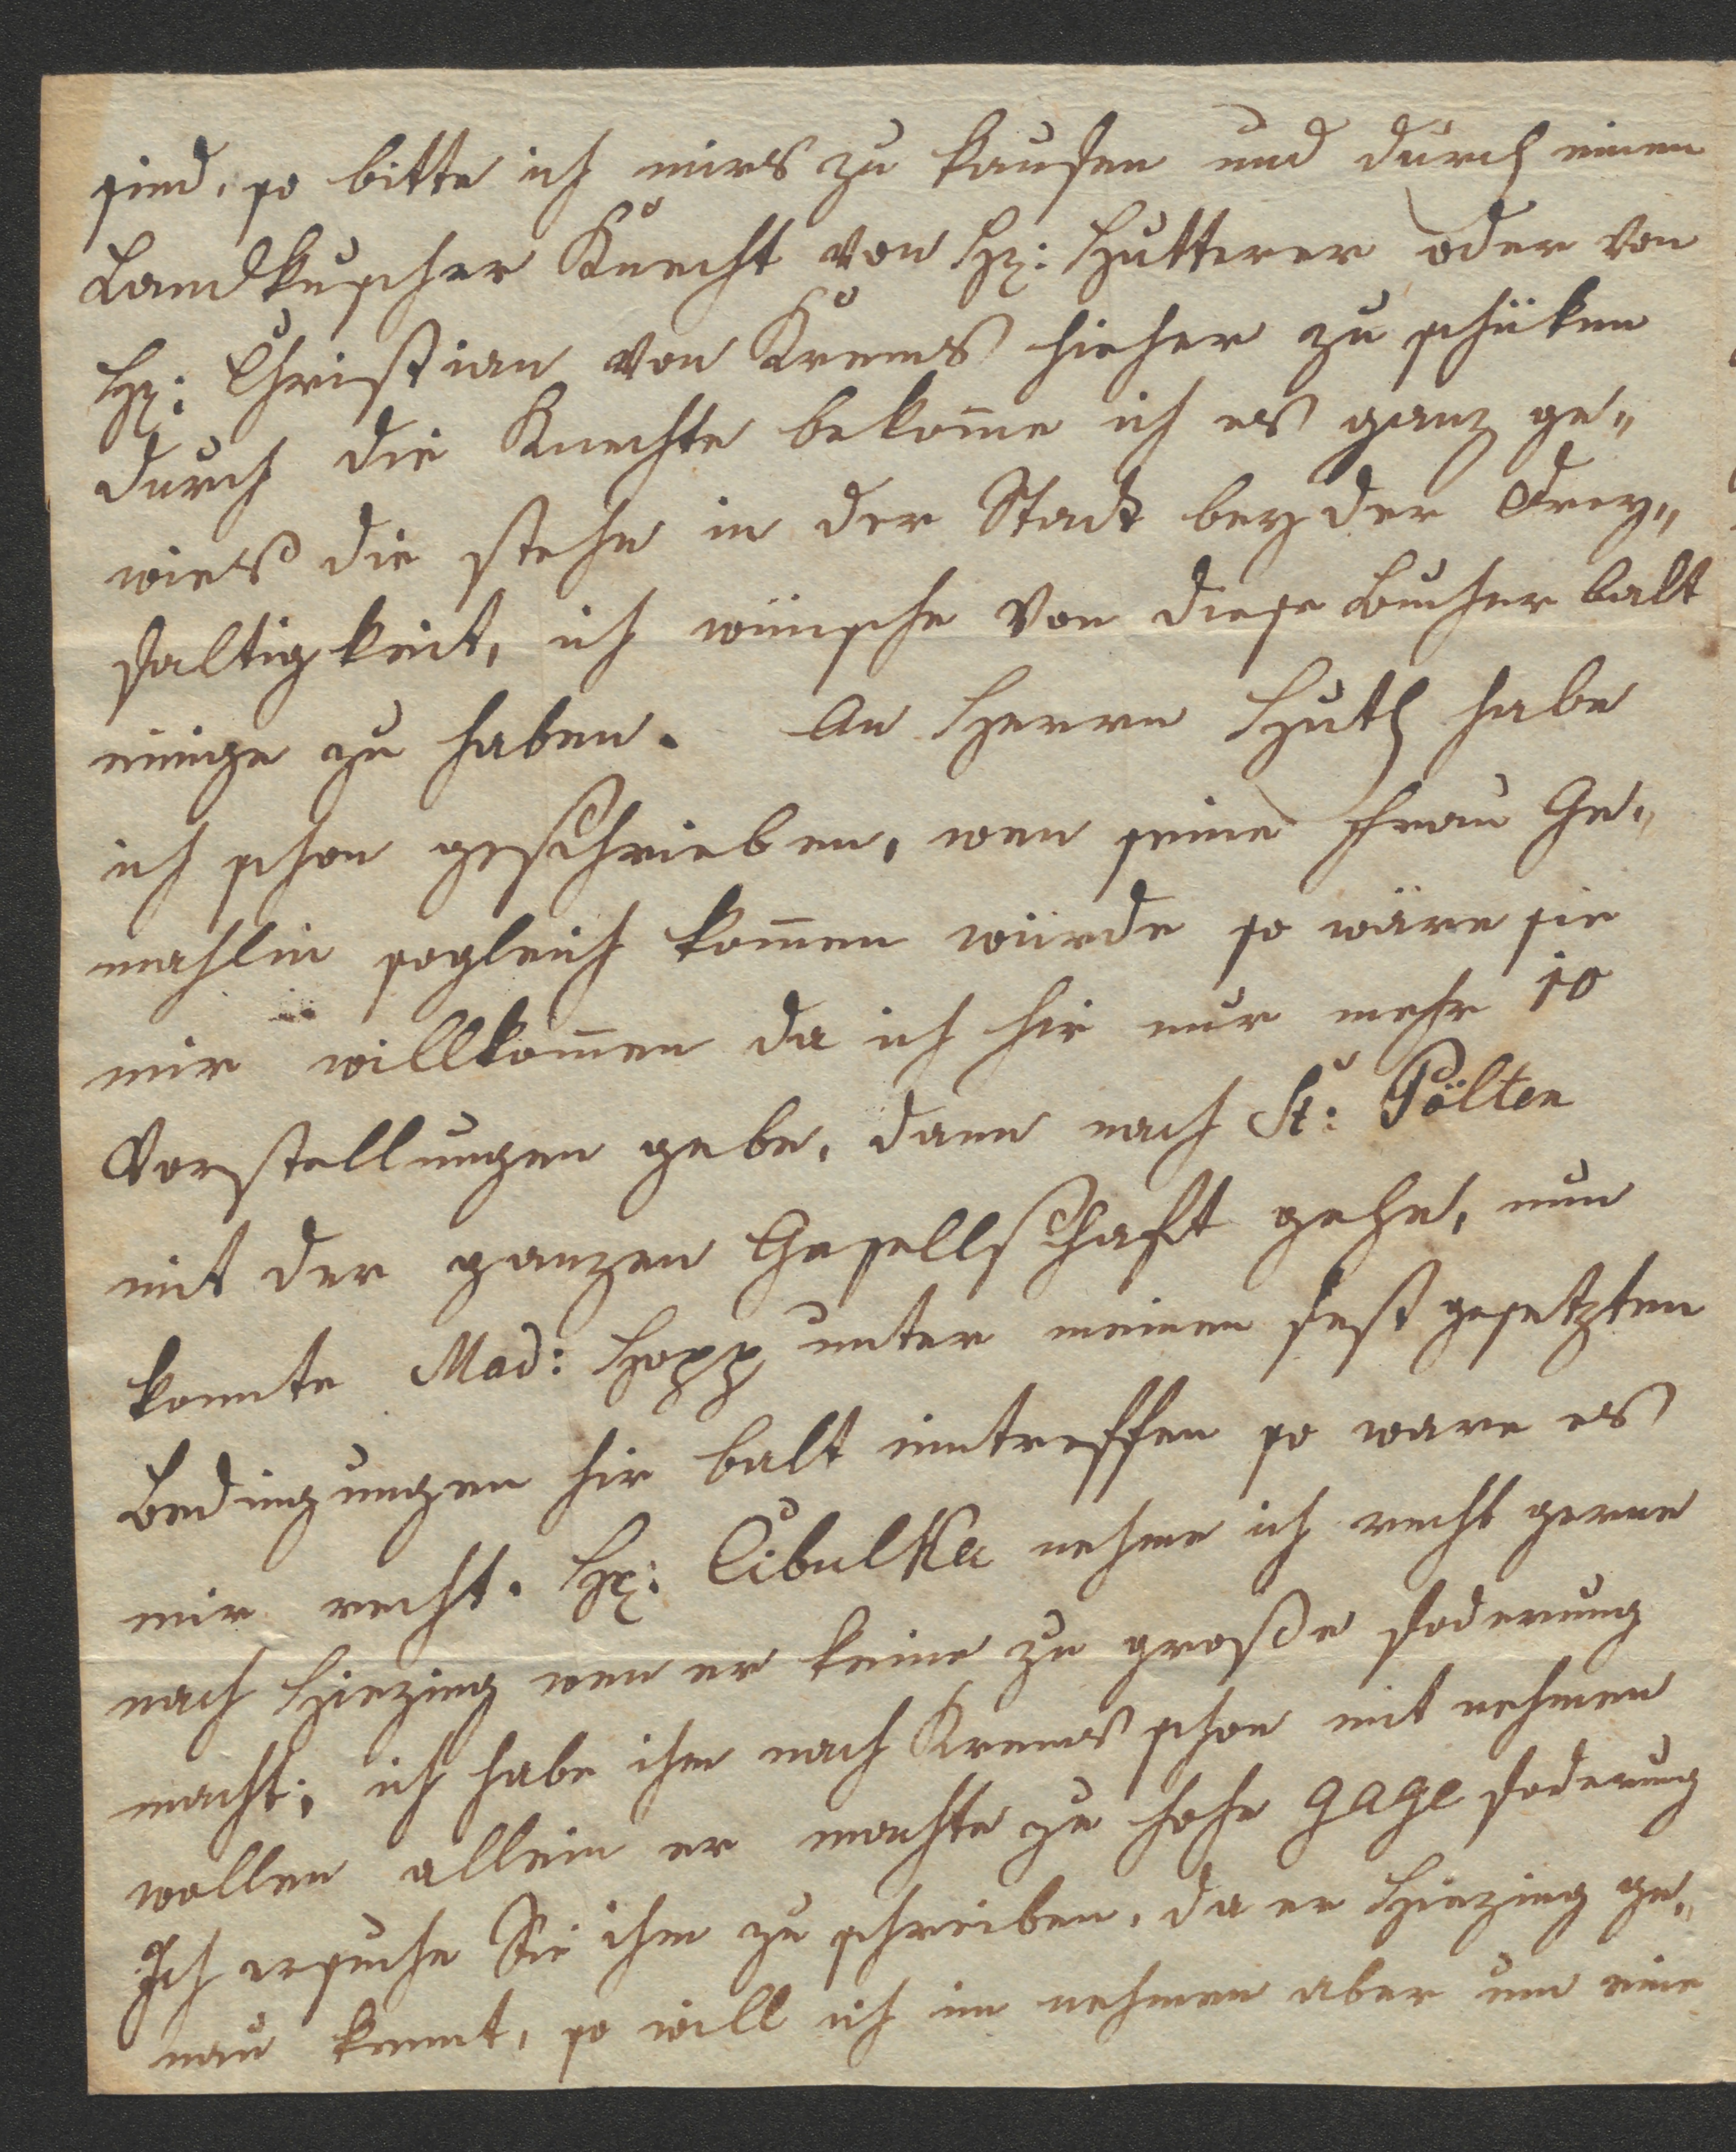 sind, so bitte ich mirs zu kaufen und durch einen
Landkuscher Knecht von H: Hutterer oder von
H: Christian von Krems hieher zu schüken
durch die Knechte bekom̅e ich es ganz ge„
wieß die stehn in der Stadt bey der Drey„
faltigkeit, ich wünsche von diese Bucher balt
einige zu haben. An Herrn Huth habe
ich schon geschrieben, wen seine Frau Ge„
mahlin sogleich kom̅en würde so wäre sie
mir willkom̅en da ich hir nur mehr 10
Vorstellungen gebe, dann nach St: Pölten
mit der ganzen Gesellschaft gehe, nun
konnte Mad: Hopp unter meinen fest gesetzten
Bedingungen hir balt eintreffen so ware es
mir recht. H: Cibulka nehme ich recht gerne
nach Hiezing wen er keine zu große foderung
macht; ich habe ihm nach Krems schon mit nehmen
wollen allein er machte zu hohe gage foderung
Ich ersuche Sie ihm zu schreiben, da er Hiezing ge„
nau kennt, so will ich im nehmen aber um eine